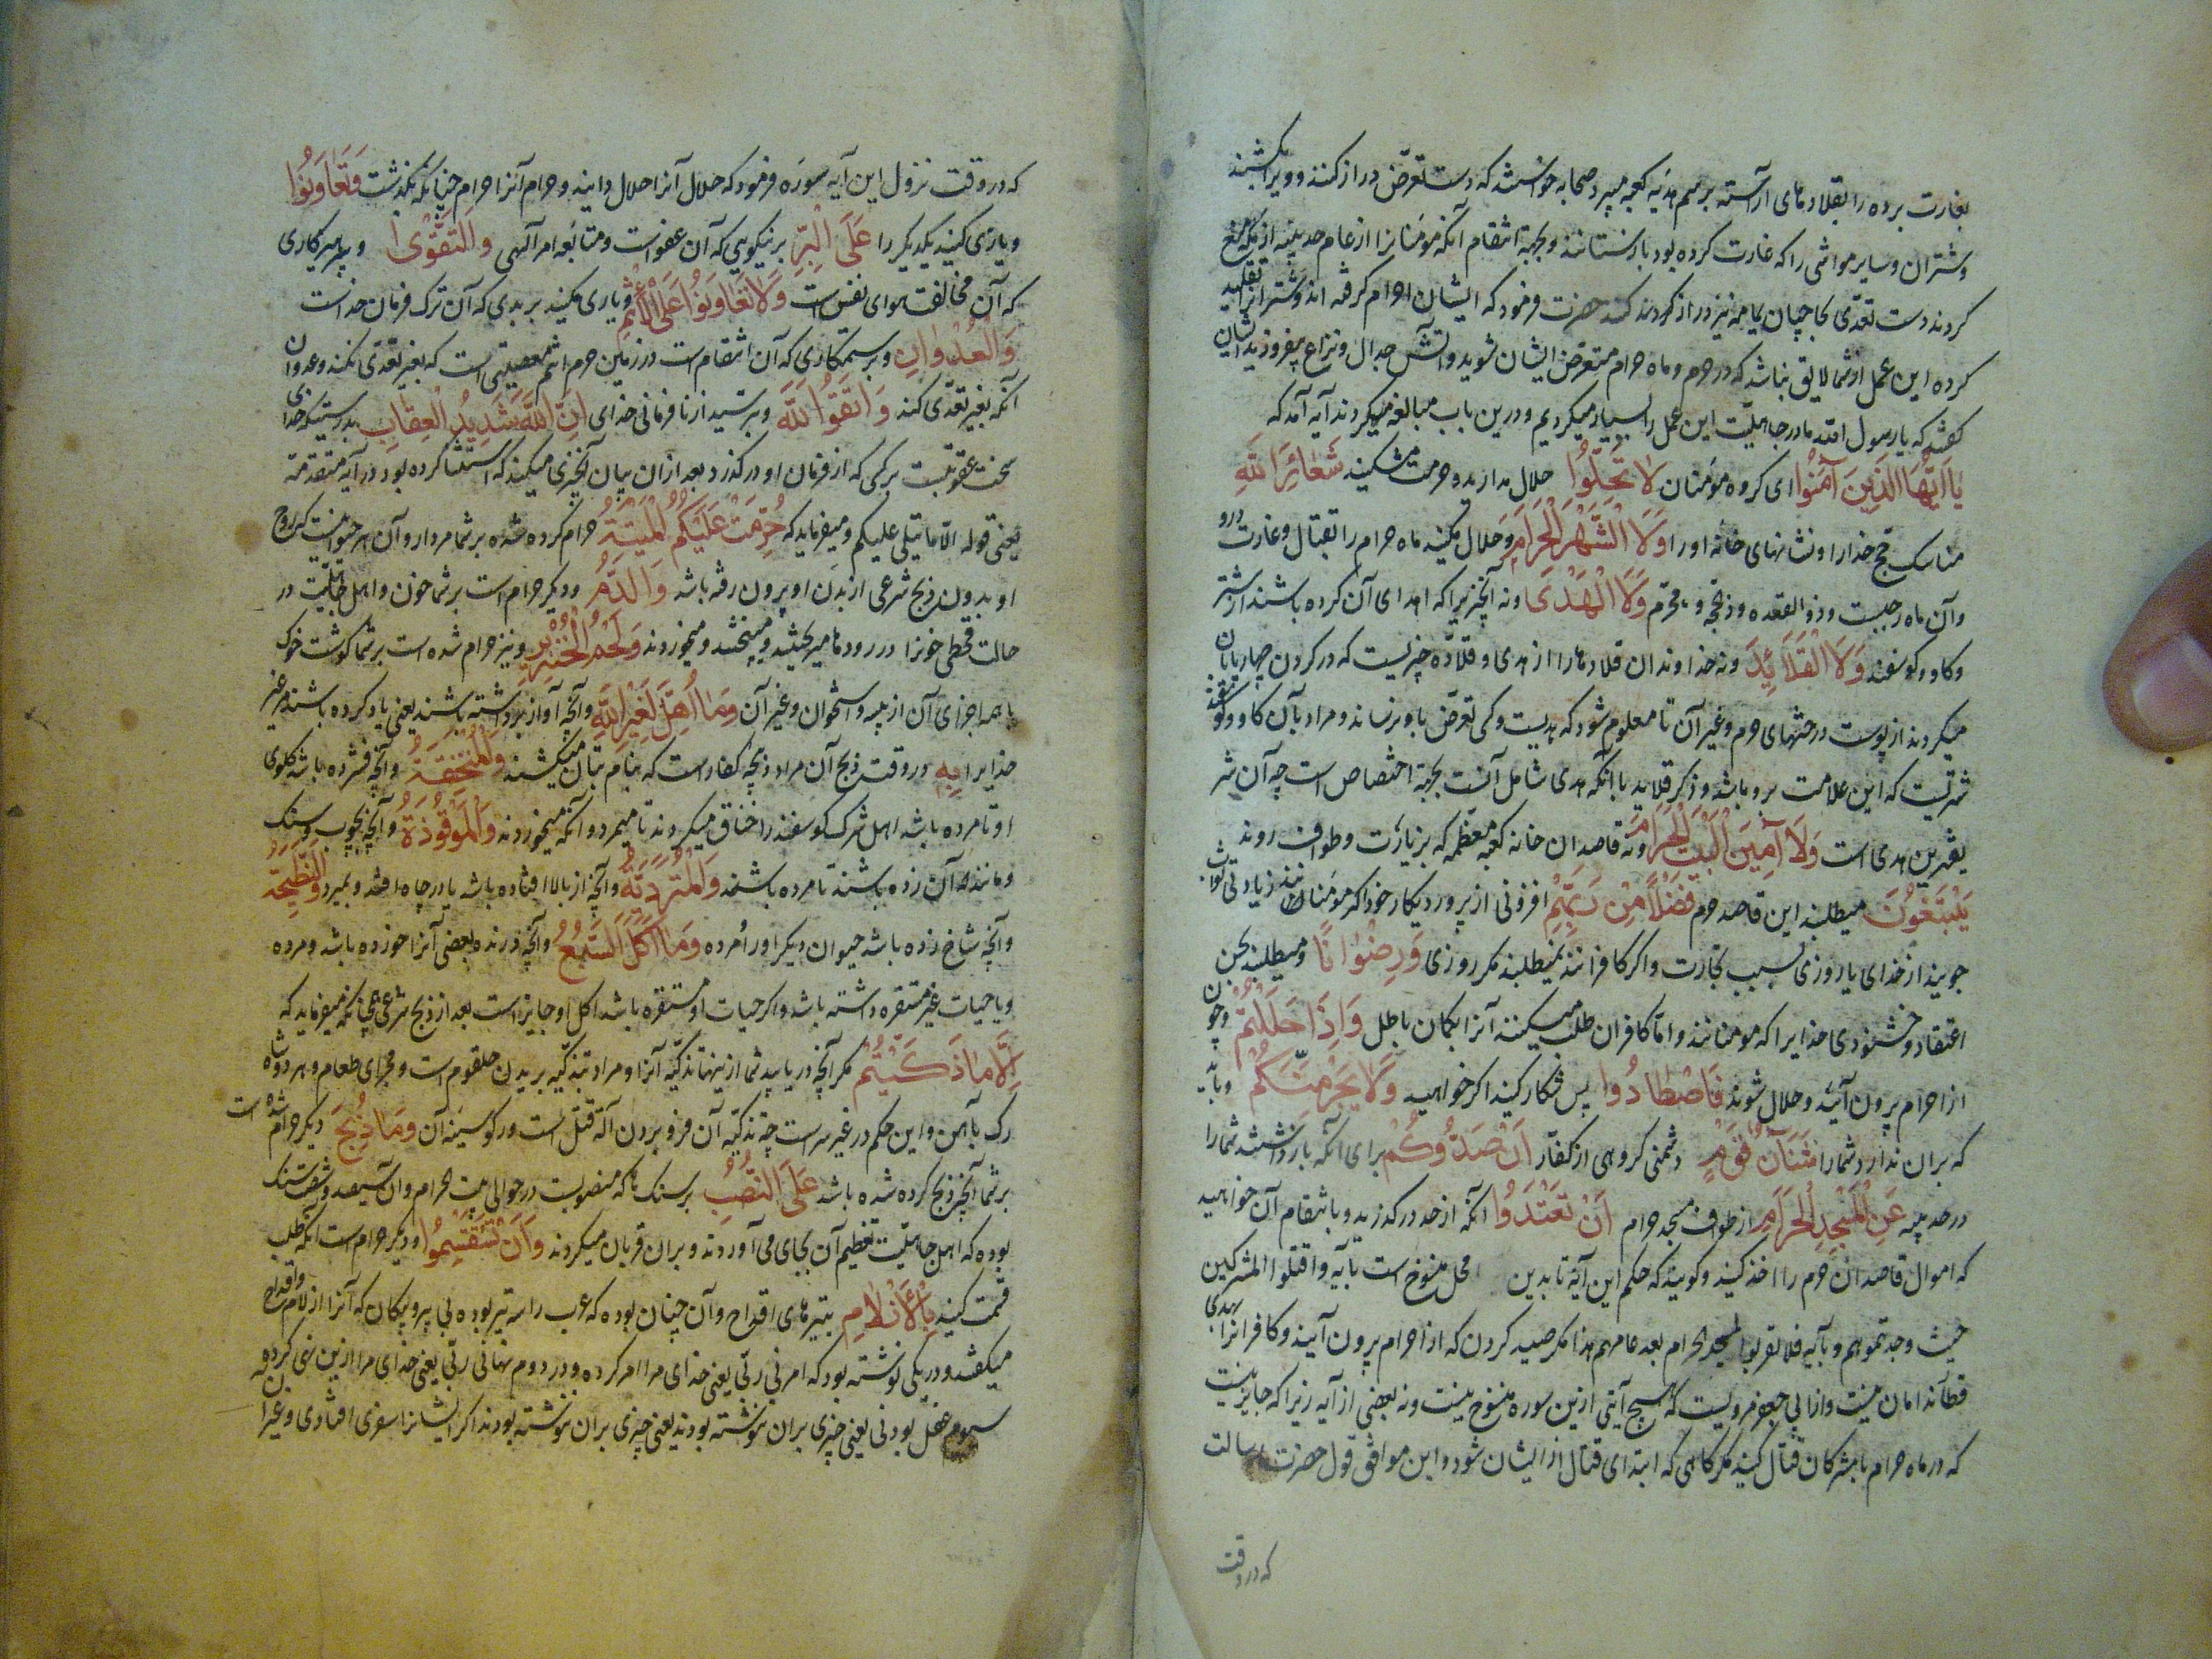 بغارت برده را بقلادهای آراسته برسم هدیه کعبه میبرد صحابه خواستند که دست تعرض دراز کنند و ویرا بکشند
و شتران و سایر مواشی را که غارت کرده بود بازستانند و بجهة انتقام آنکه مؤمنانرا از عام حدیبیه از مکه منع
کردند دست تعدی بحاجیان یمامه نیز دراز کردند حضرت فرمود که ایشان احرام گرفته اند و شترانرا تقلید
کرده این عمل از شما لایق نباشد که در حرم و ماه حرام متعرض ایشان شوید و آتش جدال و نزاع برفروزید ایشان
گفتند که یا رسول الله ما در جاهلیت این عمل را بسیار میکردیم و درین باب مبالغه میکردند آیه آمد که
یَا أَیُّهَا الَّذِینَ آمَنُوا ای گروه مؤمنان لَا تُحِلُّوا حلال مدارید و حرمت مشکنید شَعَائِرَ اللَّهِ
مناسک حج خدارا و نشانهای خانه او را وَلَا الشَّهْرَ الْحَرَامَ و حلال مکنید ماه حرام را بقتال و غارت درو
و آن ماه رجبست و ذو القعده و ذحجه و محرم وَلَا الْهَدْیَ و نه آنچیزیرا که اهدای آن کرده باشند از شتر
و کاو و کوسفند وَلَا الْقَلَائِدَ و نه خداوندان قلادهارا از هدی و قلاده چیزیست که در کردن چهارپایان
میکردند از پوست درختهای حرم و غیر آن تا معلوم شود که هدیست و کسی تعرض باو نرساند و مراد بآن کاو و کوسفند
شتریست که این علامت برو باشد و ذکر قلاید با آنکه هدی شامل آنست بجهة اختصاص است چه آن شر
یفترین هدی است وَلَا آمِّینَ الْبَیْتَ الْحَرَامَ و نه قاصدان خانه کعبه معظمه که بزیارت و طواف روند
یَبْتَغُونَ میطلبند این قاصد حرم فَضْلًا مِنْ رَبِّهِمْ افزونی از پروردکار خود اکر مؤمنان زیادتی ثواب
جویند از خدای یا روزی بسبب تجارت و اکر کافرانند نمیطلبند مکر روزی وَرِضْوَانًا و میطلبند بحسن
اعتقاد خشنودی خدایرا که مومنانند و اما کافران طلب میکنند آنرا بکمان باطل وَإِذَا حَلَلْتُمْ و چون
از احرام بیرون آئید و حلال شوید فَاصْطَادُوا پس شکار کنید اکر خواهید وَلَا یَجْرِمَنَّکُمْ و باید
که بران ندارد شمارا شَنَآنُ قَوْمٍ دشمنی کروهی از کفار أَنْ صَدُّوکُمْ برای آنکه بازداشتند شمارا
در حدیبیه عَنِ الْمَسْجِدِ الْحَرَامِ از طواف مسجد حرام أَنْ تَعْتَدُوا آنکه از حد درکذرید و بانتقام آن خواهید
که اموال قاصدان حرم را اخذ کنید و کویند که حکم این آیه تا بدین محل منسوخ است بآیه واقتلوا المشرکین
حیث وجدتموهم و بآیه فلا یقربوا المسجد الحرام بعد عامهم هذا مکر صید کردن که از احرام بیرون آیند و کافرانرا بهدی
قطعا امان نیست و از ابی جعفر مرویست که هیچ آیتی ازین سوره منسوخ نیست و نه بعضی از آیه زیرا که جایز نیست
که در ماه حرام با مشرکان قتال کنید مکر کاهی که ابتدای قتال از ایشان شود و این موافق قول حضرت رسالت
که در وقت
که در وقت نزول این آیه سوره فرمود که حلال آنرا حلال دانید و حرام آنرا حرام چنانکه بکذشت وَتَعَاوَنُوا
و یاری کنید یکدیکر را عَلَی الْبِرِّ بر نیکویی که آن عفو است و متابعه امر آلهی وَالتَّقْوَی و پرهیزکاری
که آن مخالفت هوای نفس است وَلَا تَعَاوَنُوا عَلَی الْإِثْمِ و یاری مکنید بر بدی که آن ترک فرمان خداست
وَالْعُدْوَانِ و بر ستمکاری که آن انتقام است در زمین حرم اثم معصیتی است که بغیر تعدی نکند و عدوان
آنکه بغیر تعدی کند وَاتَّقُوا اللَّهَ و بترسید از نافرمانی خدای إِنَّ اللَّهَ شَدِیدُ الْعِقَابِ بدرستیکه خدای
سخت عقوبتست بر کسی که از فرمان او درکذرد بعد ازان بیان آنچیزی میکند که استثنا کرده بود در آیه متقدمه
یعنی قوله الا ما یتلی علیکم و میفرماید که حُرِّمَتْ عَلَیْکُمُ الْمَیْتَةُ حرام کرده شده بر شما مردار و آن هر حیوانیست که روح
او بدون ذبح شرعی از بدن او بیرون رفته باشد وَالدَّمُ و دیکر حرام است بر شما خون و اهل جاهلیت در
حالت قحطی خونرا در رودها میریختند و میپختند و میخوردند وَلَحْمُ الْخِنْزِیرِ و نیز حرام شده است بر شما کوشت خوک
با همه اجزای آن از پیه و استخوان و غیر آن وَمَا أُهِلَّ لِغَیْرِ اللَّهِ و آنچه آواز برداشته باشند یعنی یاد کرده باشند غیر
خدایرا بِهِ در وقت ذبح آن مراد ذبیحه کفار است که بنام بتان میکشند وَالْمُنْخَنِقَةُ و آنچه فشرده باشد کلوی
او تا مرده باشد اهل شرک کوسفند را خناق میکردند تا میمرد و آنکه میخوردند وَالْمَوْقُوذَةُ و آنچه بچوب و سنک
و مانند آن زده باشند تا مرده باشند وَالْمُتَرَدِّیَةُ و آنچه از بالا افتاده باشد یا در چاه افتد و بمیرد وَالنَّطِیحَةُ
و آنچه شاخ زده باشد حیوان دیکر او را و مرده وَمَا أَکَلَ السَّبُعُ و آنچه درنده بعضی آنرا خورده باشد و مرده
و یا حیات غیر مستقره داشته باشد و اکر حیات او مستقره باشد اکل او جایز است بعد از ذبح شرعی چنانکه میفرماید که
إِلَّا مَا ذَکَّیْتُمْ مکر آنچه دریابید شما ازینها تذکیه آنرا و مراد بتذکیه بریدن حلقوم است و مجرای طعام و هر دو شاه
رک بآهن و این حکم در غیر شتر است چه تذکیه آن فرو بردن آلة قتل است در کو سینه آن وَمَا ذُبِحَ دیکر حرام شده است
بر شما آنچیز ذبح کرده شده باشد عَلَی النُّصُبِ بر سنک ها که منصوبست در حوالی بیت الحرام و آن سیصد و شصت سنک
بوده که اهل جاهلیت تعظیم آن بجای می آوردند و بران قربان میکردند وَأَنْ تَسْتَقْسِمُوا و دیکر حرام است آنکه طلب
قسمت کنید بِالْأَزْلَامِ بتیرهای اقداح و آن چنان بوده که عرب را سه تیر بوده بی پر و پیکان که آنرا ازلام و اقداح
میکفتند و در یکی نوشته بود که امرنی ربی یعنی خدای مرا امر کرده و در دوم نهانی ربی یعنی خدای مرا ازین نهی کرده و
سیوم غفل بود یعنی چیزی بران ننوشته بودند یعنی چیزی بران ننوشته بودند اکر ایشانرا سفری افتادی و غیر آن